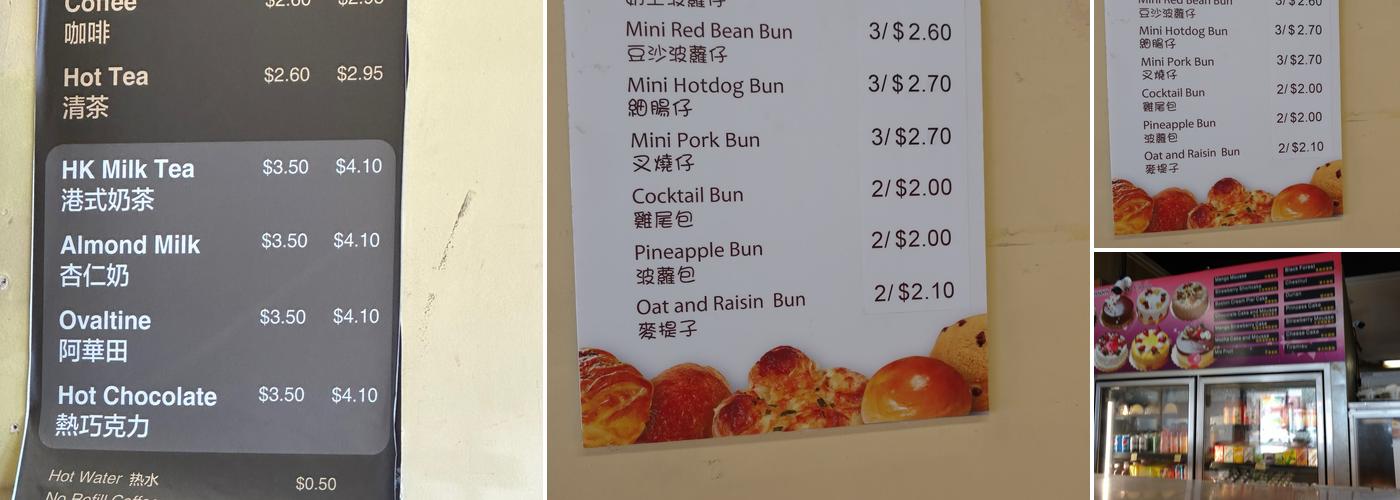 Coffee $2.60 $2.95
咖啡
Hot Tea $2.60 $2.95
清茶
HK Milk Tea $3.50 $4.10
港式奶茶
Almond Milk $3.50 $4.10
杏仁奶
Ovaltine $3.50 $4.10
阿華田
Hot Chocolate $3.50 $4.10
熱巧克力
Hot Water 热水 $0.50
No Refill Coffee
奶王波蘿仔
Mini Red Bean Bun 3/$2.60
豆沙波蘿仔
Mini Hotdog Bun 3/$2.70
細腸仔
Mini Pork Bun 3/$2.70
叉燒仔
Cocktail Bun 2/$2.00
雞尾包
Pineapple Bun 2/$2.00
波蘿包
Oat and Raisin Bun 2/$2.10
麥提子
Mini Red Bean Bun 3/$2.60
豆沙波蘿仔
Mini Hotdog Bun 3/$2.70
細腸仔
Mini Pork Bun 3/$2.70
叉燒仔
Cocktail Bun 2/$2.00
雞尾包
Pineapple Bun 2/$2.00
波蘿包
Oat and Raisin Bun 2/$2.10
麥提子
Mango Mousse
Strawberry Shortcake
Boston Cream Pie/ Cake
Chocolate Cake and Mousse
Mango Strawberry Cake
Mocha Cake and Mousse
Mix Fruit
Black Forest
Chestnut
Durian
Princess Cake
Strawberry Mousse
Cheese Cake
Tiramisu